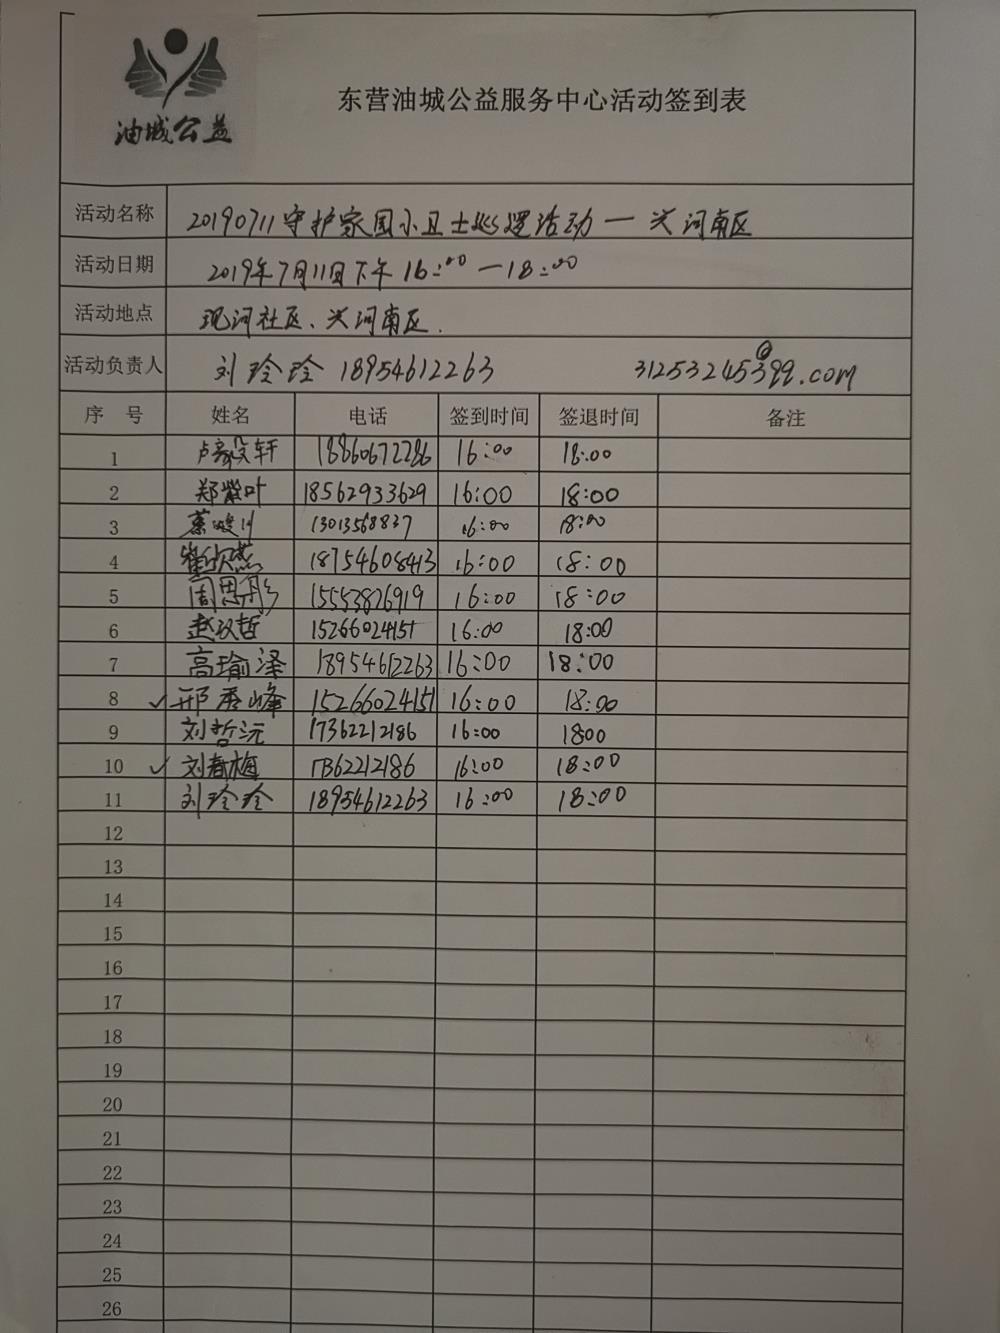 油城公益
东营油城公益服务中心活动签到表
活动名称 20190711守护家园小卫士巡逻活动一兴河南区
活动日期 2019年7月11日下午16:00—18:00
活动地点 现河社区、兴河南区.
活动负责人 刘玲玲 18954612263 312532453@qq.com
序号 姓名 电话 签到时间 签退时间 备注
1 卢豪文轩 18860672286 16:00 18:00
2 郑紫叶 18562933629 16:00 18:00
3 峻川 13013568837 16:00 18:00
4 崔欣燕 18754608413 16:00 18:00
5 周恩彤 15553826919 16:00 18:00
6 赵汉哲 15266024151 16:00 18:00
7 高瑜泽 18954612263 16:00 18:00
8 ✓邢秀峰 15266024151 16:00 18:00
9 刘哲沅 17362212186 16:00 1800
10 ✓刘春梅 17362212186 16:00 18:00
11 刘玲玲 18954612263 16:00 18:00
12
13
14
15
16
17
18
19
20
21
22
23
24
25
26